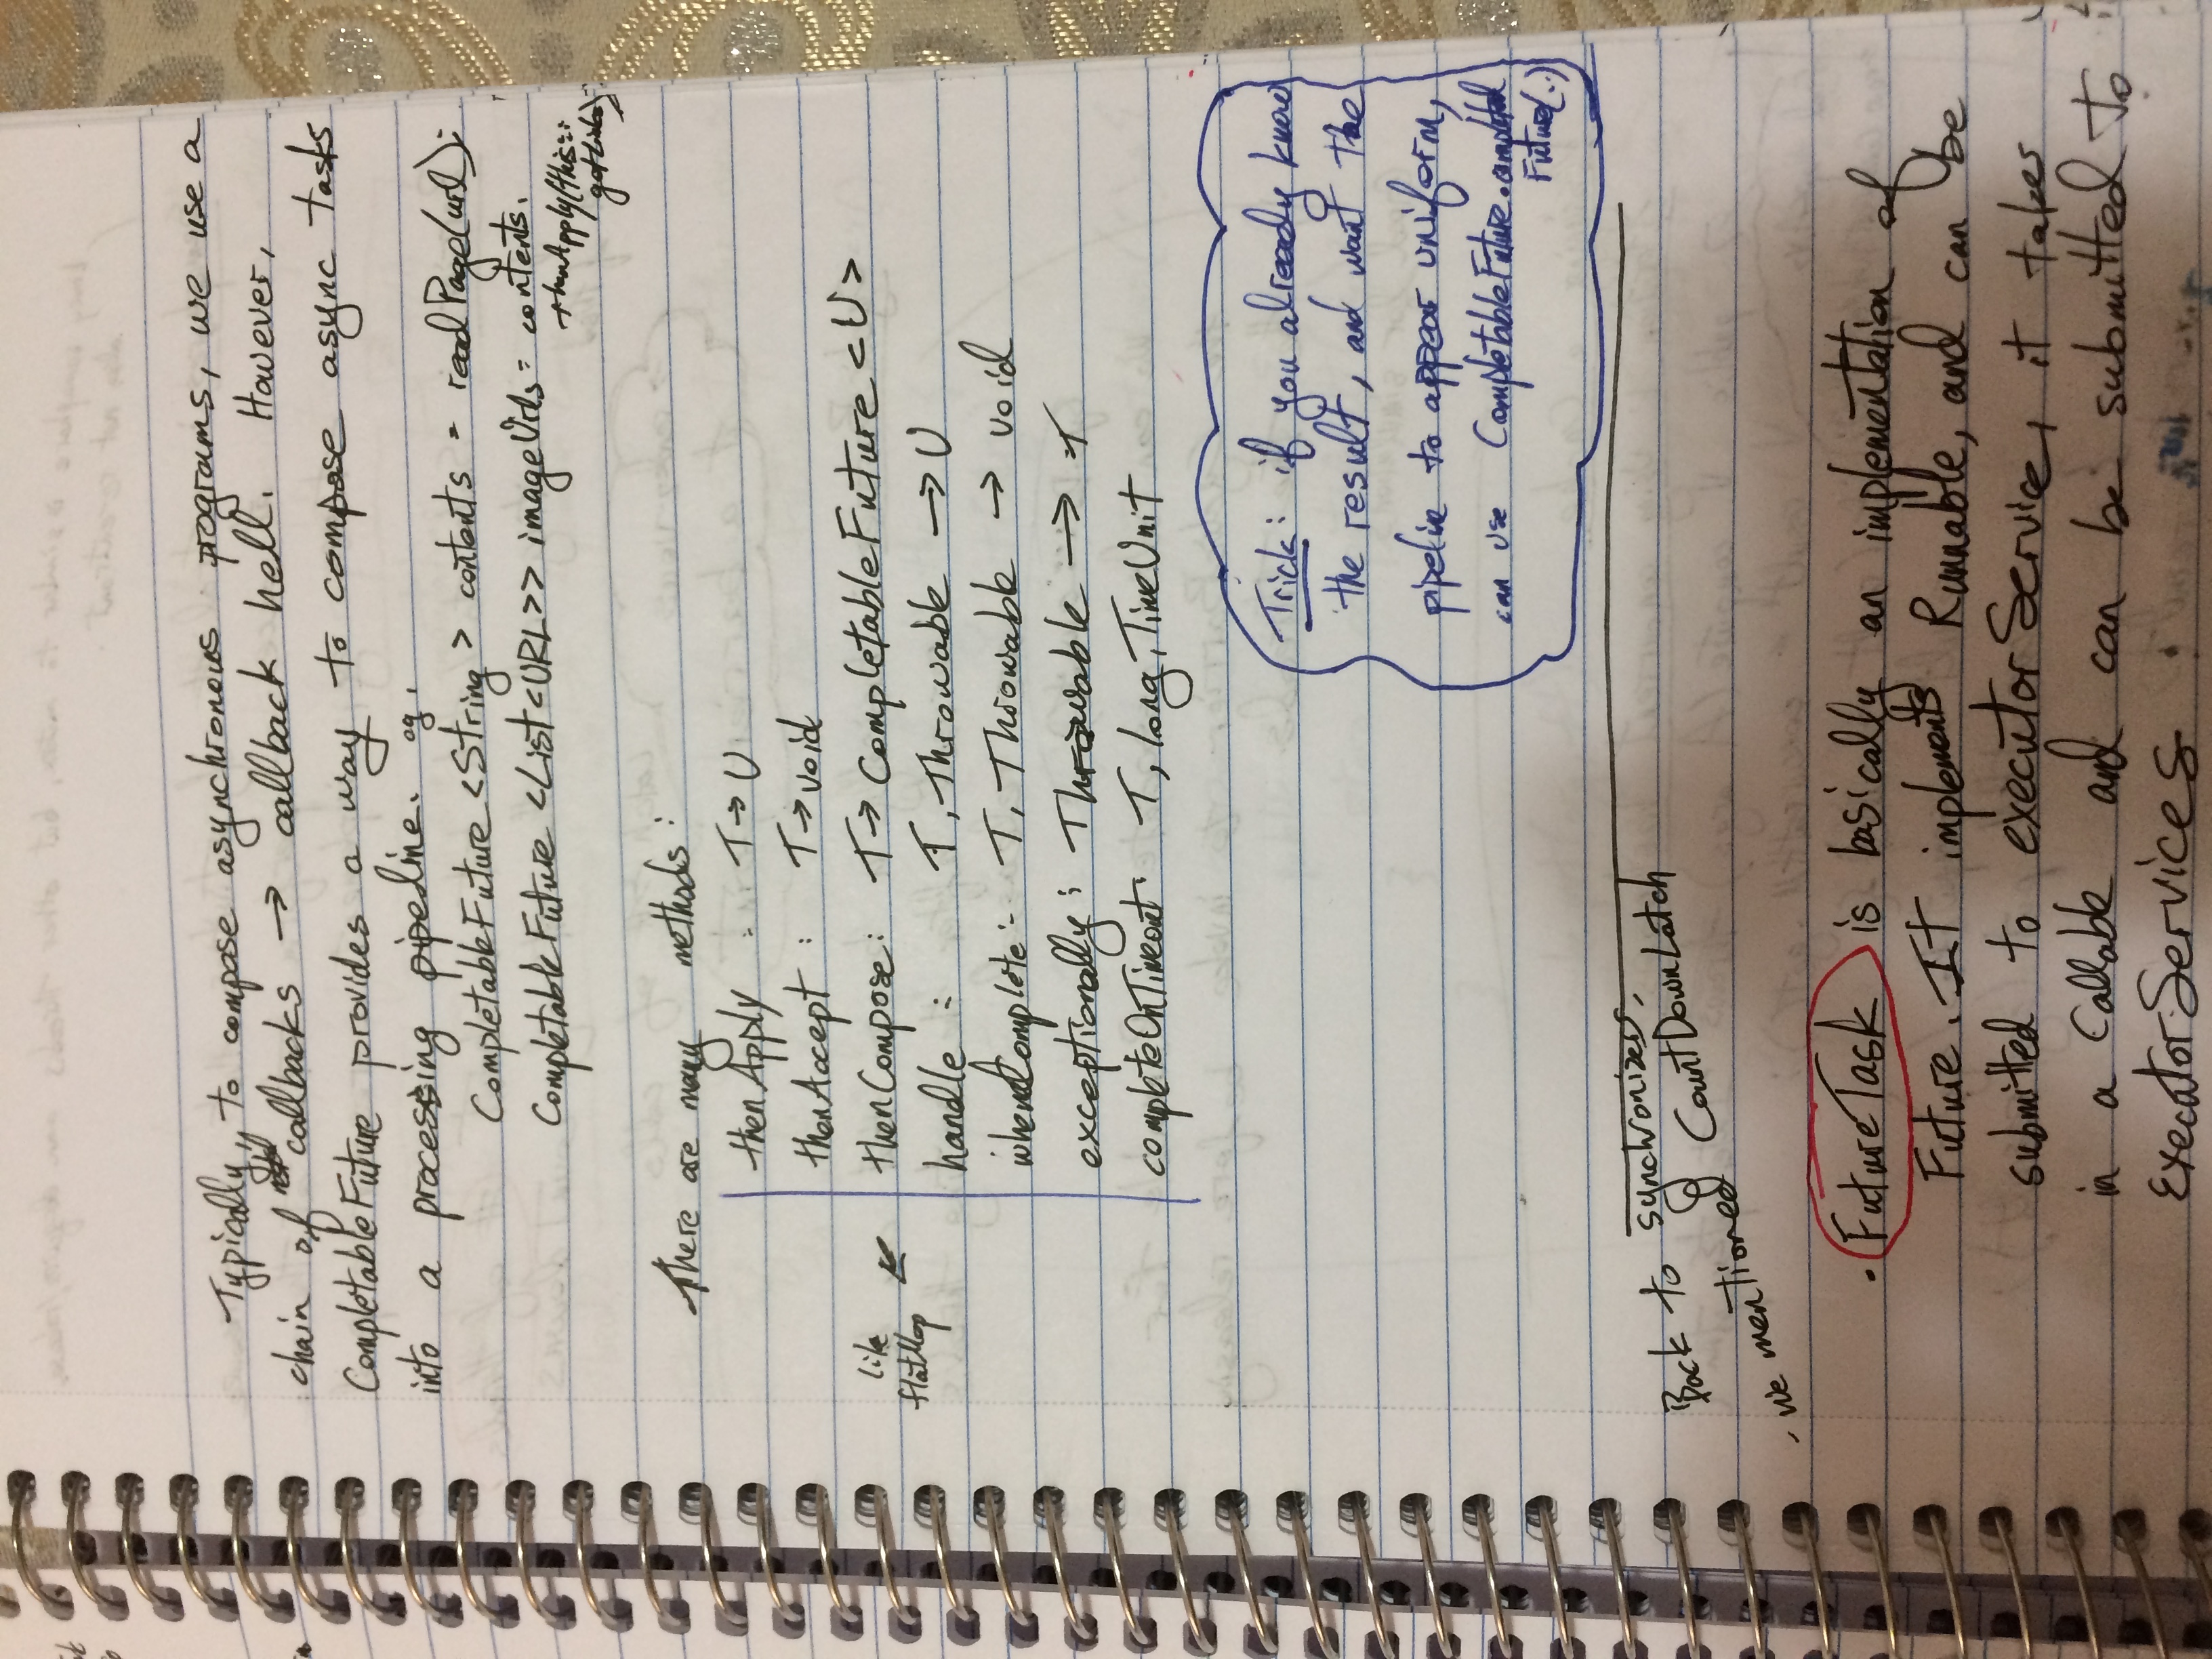 Typically, to compose asynchronous programs, we use a
chain of nested callbacks → callback hell. However,
CompletableFuture provides a way to compose async tasks
into a processing pipeline. eg.
CompletableFuture <String> contents = readPage(url);
CompletableFuture <List<URL>> imageUrls = contents.
thenApply(this::
getLinks);
There are many methods:
thenApply : T → U
thenAccept : T → void
like
flatMap
↙ thenCompose: T → CompletableFuture <U>
handle : T, Throwable → U
whenComplete: T, Throwable → void
exceptionally: Throwable → T
completeOnTimeout: T, long, TimeUnit
Trick: if you already know
the result, and want the
pipeline to appear uniform,
can use CompletableFuture.completed
Future(..)
Back to synchronizers,
- we mentioned CountDownLatch
. FutureTask is basically an implementation of
Future. It implements Runnable, and can be
submitted to executorService, it takes
in a Callable and can be submitted to
ExecutorServices